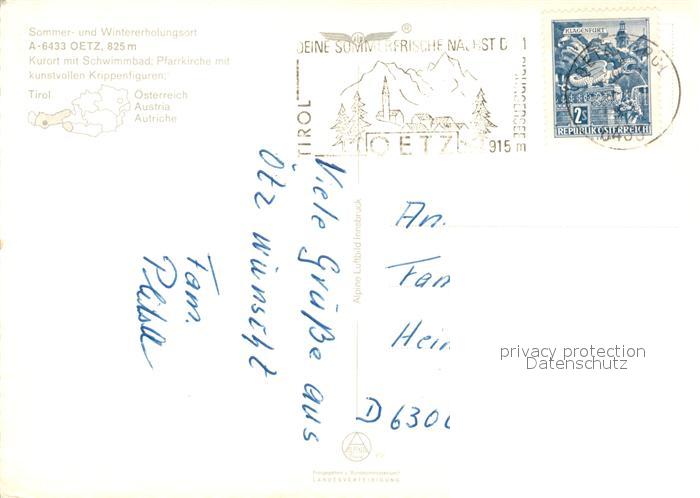 Sommer- und Wintererholungsort
A-6433 OETZ, 825 m
Kurort mit Schwimmbad; Pfarrkirche mit
kunstvollen Krippenfiguren;
Tirol
Österreich
Austria
Autriche
DEINE SOMMERFRISCHE NÄCHST D
TIROL
OETZ
915 m
KLAGENFURT
2S
REPUBLIK ÖSTERREICH
Viele Grüße aus
Ötz wünscht
Fam.
Alpine Luftbild Innsbruck
An.
Fam
Hein
D 630
privacy protection
Datenschutz
Freigegeben v. Bundesministerium f.
LANDESVERTEIDIGUNG